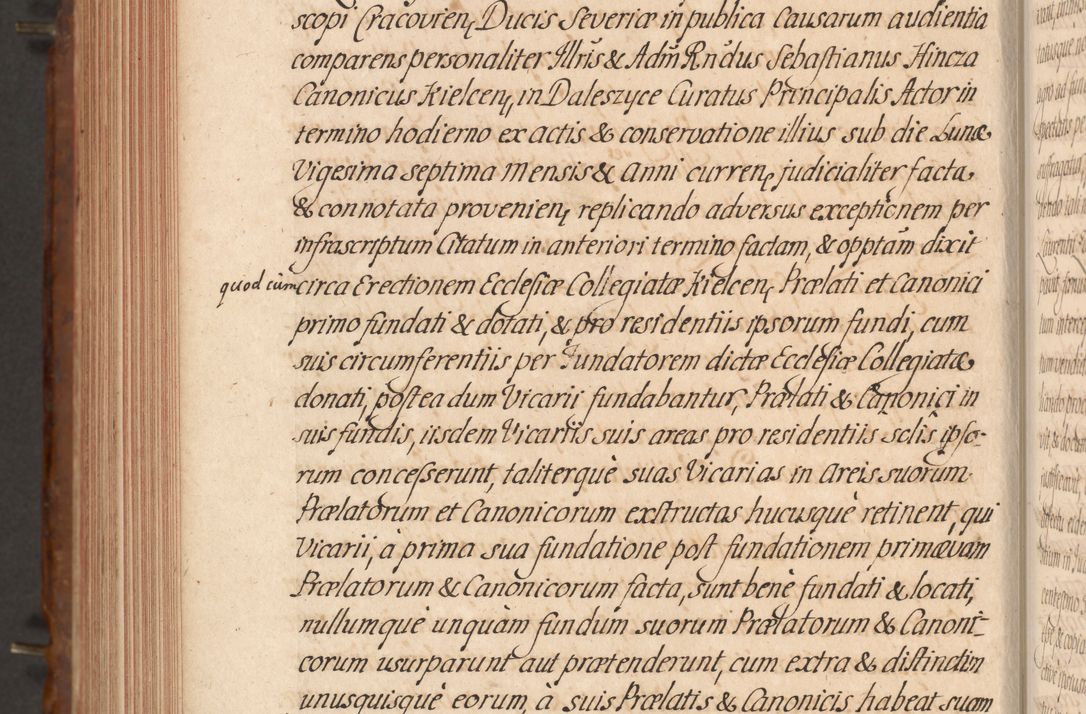 scopi Cracovien, Ducis Severiæ in publica Causarum audientia
comparens personaliter Illris & Adm̃ Rndus Sebastianus Hincza
Canonicus Kielcen, in Daleszyce Curatus Principalis Actor in
termino hodierno ex actis & conservatione illius sub die Lunæ
Vigesima septima Mensis & Anni curren, judicialiter facta,
& connotata provenien, replicando adversus exceptionem per
infrascriptum Citatum in anteriori termino factam, & opptam dixit
quod cum circa Erectionem Ecclesiæ Collegiatæ Kielcen, Prælati et Canonici
primo fundati & dotati, & pro residentiis ipsorum fundi, cum
suis circumferentiis per Fundatorem dictæ Ecclesiæ Collegiatæ
donati, postea dum Vicarii fundabantur, Prælati & Canonici in
suis fundis, iisdem Vicariis suis areas pro residentiis solis ipso-
rum concesserunt, taliterquè suas Vicarias in Areis suorum
Prælatorum et Canonicorum exstructas hucusquè retinent, qui
Vicarii, à prima sua fundatione post fundationem primævam
Prælatorum & Canonicorum facta, sunt benè fundati & locati,
nullumquè unquàm fundum suorum Prælatorum & Canoni-
corum usurparunt aut prætenderunt, cum extra & distinctim
unusquisquè eorum, à suis Prælatis & Canonicis habeat suam